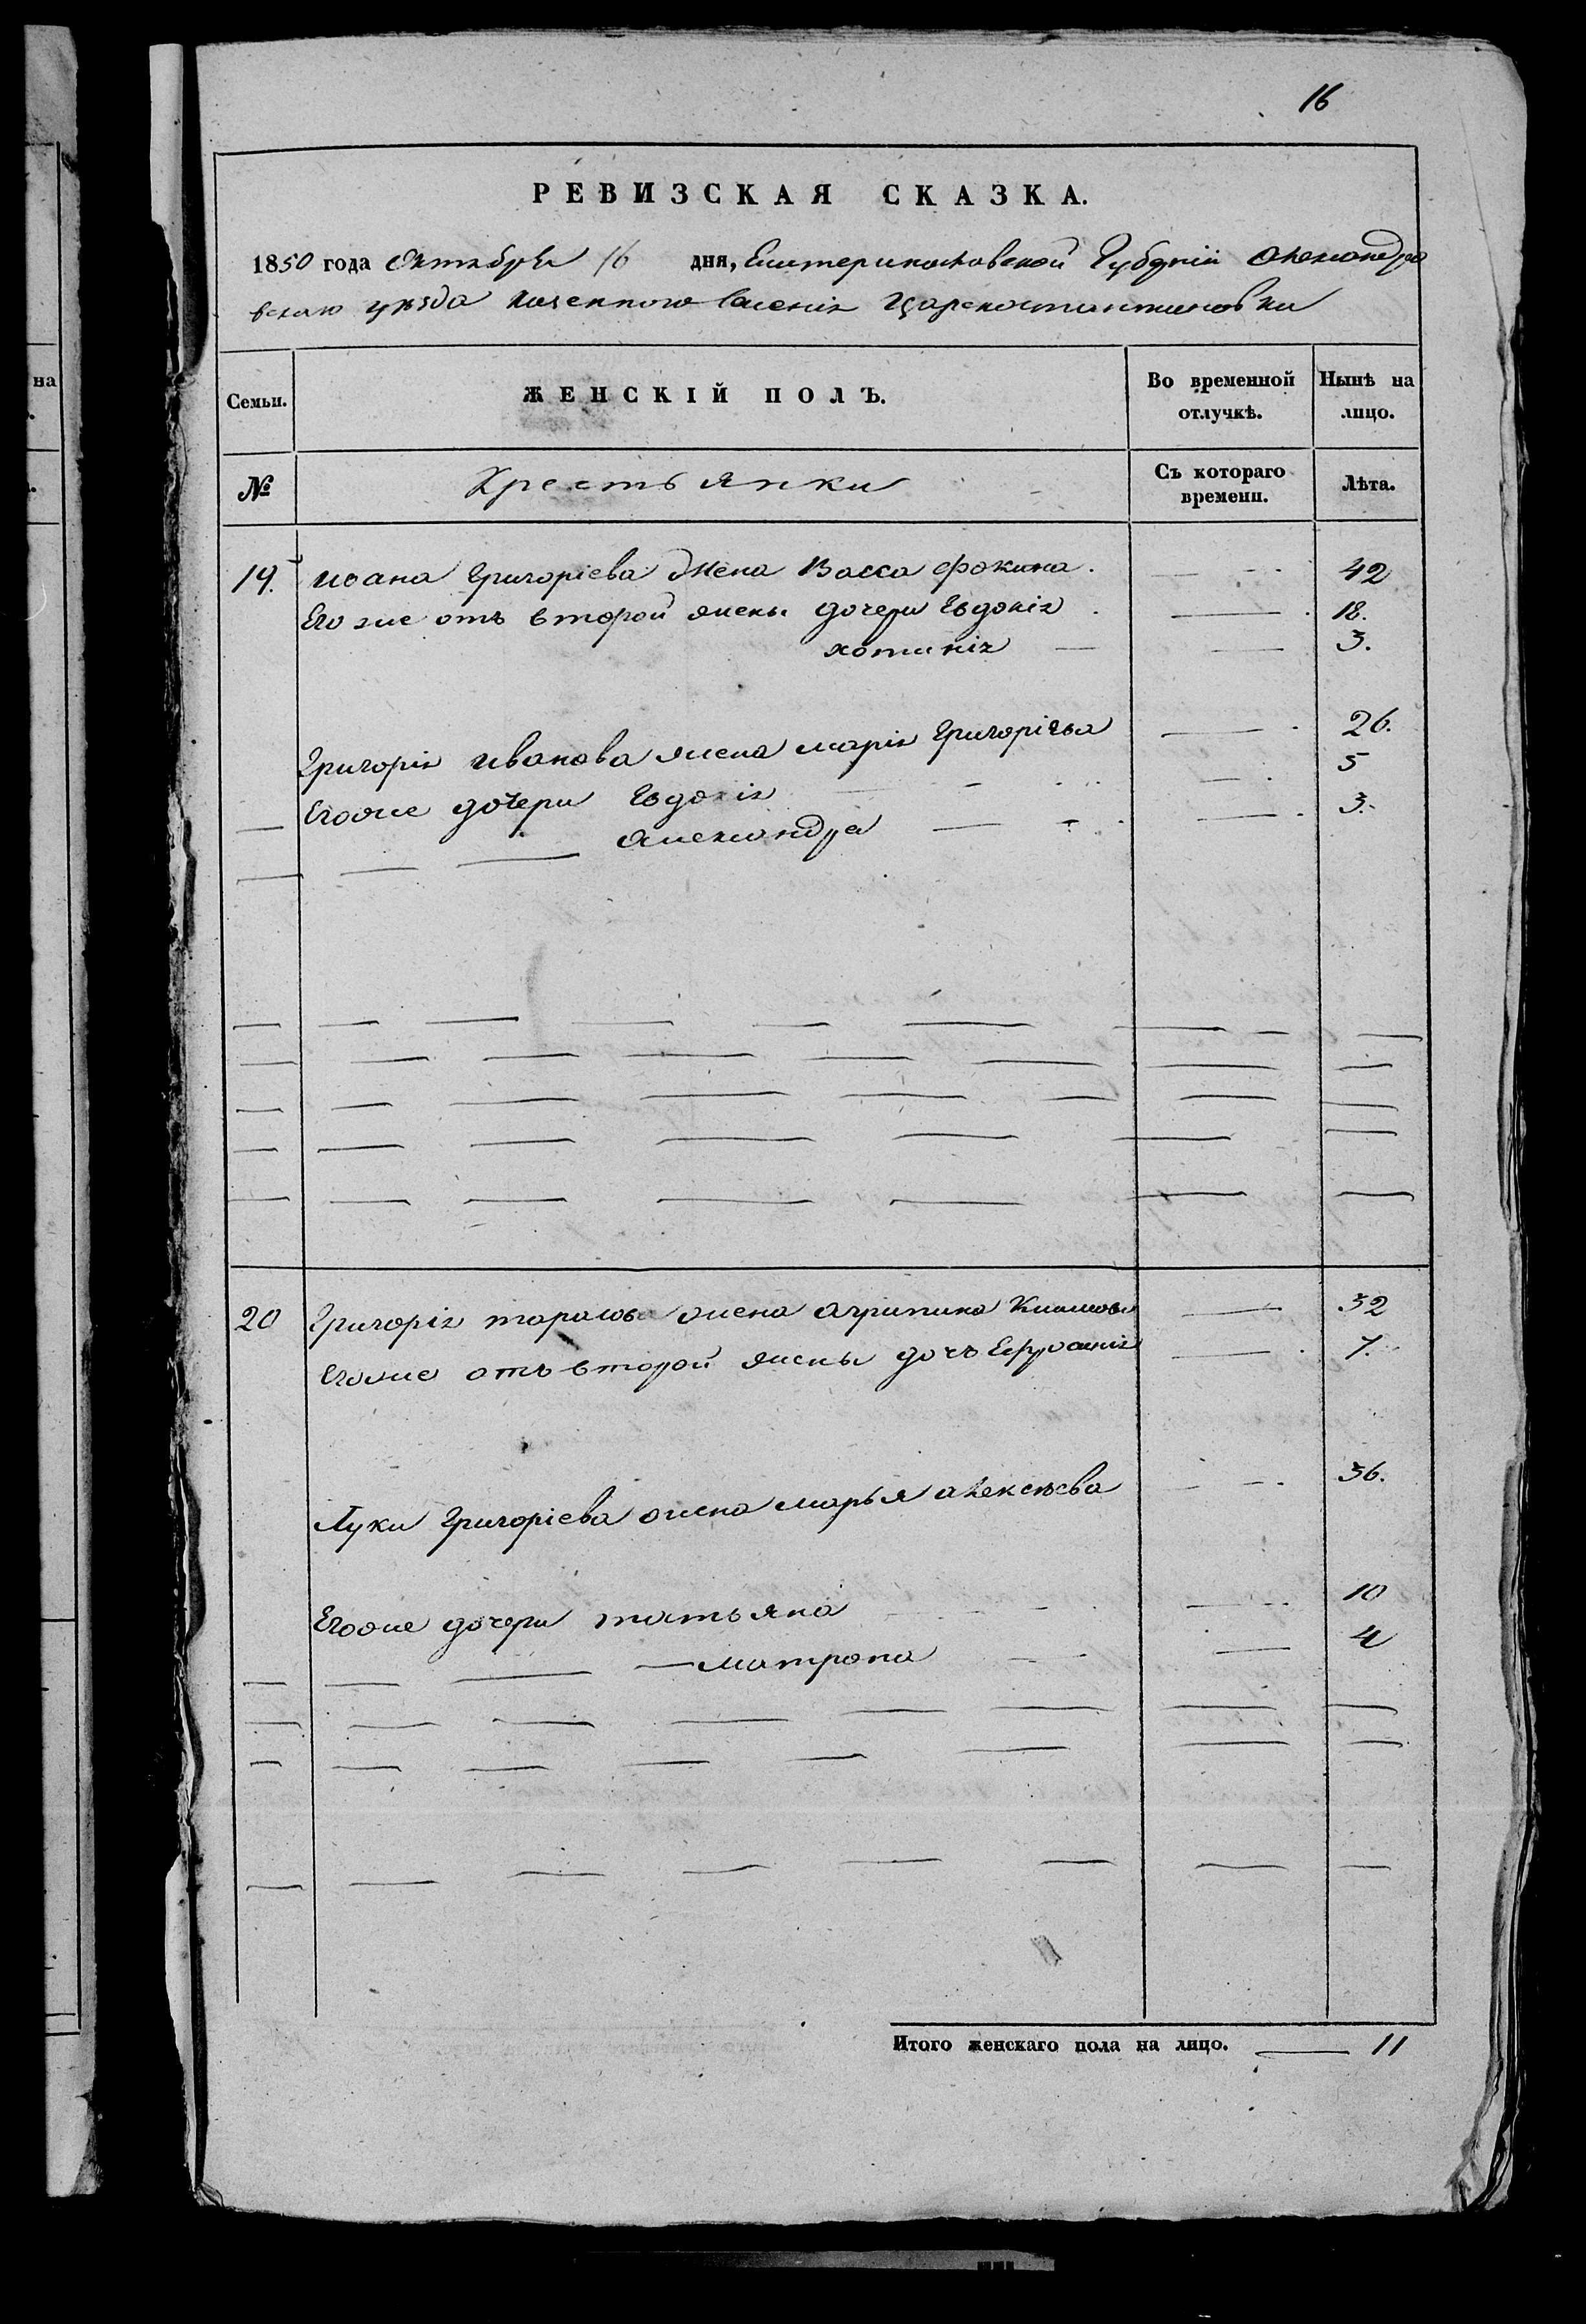 16
РЕВИЗСКАЯ СКАЗКА.
1850 года Октября 16 дня, Екатеринославской Губерніи Александро
вскаго уѣзда казенного селенія Цареконстантиновки
на
Семьи.
ЖЕНСКІЙ ПОЛЪ.
Во временной отлучкѣ.
Нынѣ на лицо.
№
Крестьянки
Съ котораго времени.
Лѣта.
19. Ивана Григоріева жена Васса Фокина. 42
Его же отъ второй жены дочери Евдокія 18.
хотинія 3.
Григорія Иванова жена Марія Григорічва 26.
Егоже дочери Евдокія 5
Александра 3.
20 Григорія тарасова жена Агрипина 32
Егоже отъ второй жены дочь Ефросинія 7.
Луки Григоріева жена Марья алексѣева 36.
Егоже дочери татьяна 10
матрона 4
Итого женскаго пола на лицо. 11